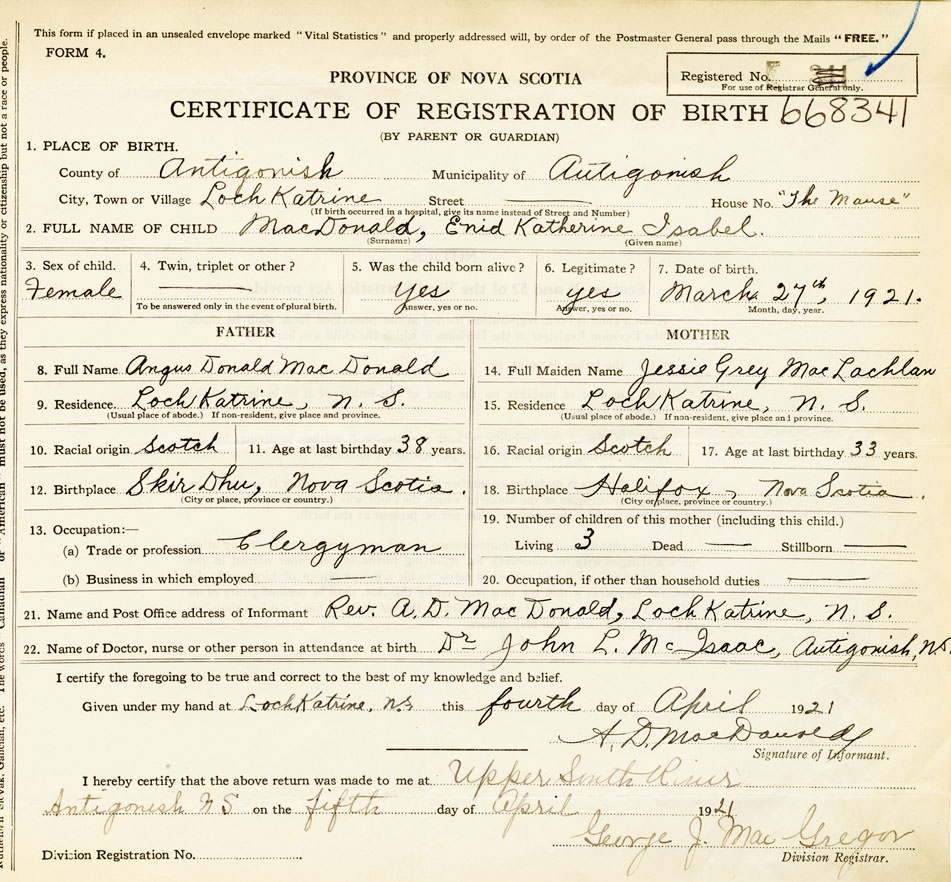 This form if placed in an unsealed envelope marked "Vital Statistics" and properly addressed will, by order of the Postmaster General pass through the Mails "FREE."
FORM 4.
Registered No.
For use of Registrar General only.
PROVINCE OF NOVA SCOTIA
CERTIFICATE OF REGISTRATION OF BIRTH 668341
(BY PARENT OR GUARDIAN)
1. PLACE OF BIRTH.
County of Antigonish Municipality of Antigonish
City, Town or Village Loch Katrine Street House No. "The Manse"
(If birth occurred in a hospital, give its name instead of Street and Number)
2. FULL NAME OF CHILD MacDonald, Enid Katherine Isabel.
(Surname) (Given name)
3. Sex of child. 4. Twin, triplet or other? 5. Was the child born alive? 6. Legitimate? 7. Date of birth.
Female Yes yes March 27th, 1921.
To be answered only in the event of plural birth. Answer, yes or no. Answer, yes or no. Month, day, year.
FATHER MOTHER
8. Full Name Angus Donald MacDonald 14. Full Maiden Name Jessie Grey MacLachlan
9. Residence Loch Katrine, N. S. 15. Residence Loch Katrine, N. S.
(Usual place of abode.) If non-resident, give place and province. (Usual place of abode.) If non-resident, give place and province.
10. Racial origin Scotch 11. Age at last birthday 38 years. 16. Racial origin Scotch 17. Age at last birthday 33 years.
12. Birthplace Skir Dhu, Nova Scotia. 18. Birthplace Halifax, Nova Scotia.
(City or place, province or country.) (City or place, province or country.)
13. Occupation:— 19. Number of children of this mother (including this child.)
(a) Trade or profession Clergyman Living 3 Dead — Stillborn —
(b) Business in which employed — 20. Occupation, if other than household duties —
21. Name and Post Office address of Informant Rev. A. D. MacDonald, Loch Katrine, N. S.
22. Name of Doctor, nurse or other person in attendance at birth Dr John L. McIsaac, Antigonish, N.S.
I certify the foregoing to be true and correct to the best of my knowledge and belief.
Given under my hand at Loch Katrine, N.S. this fourth day of April 1921
A. D. MacDonald
Signature of Informant.
I hereby certify that the above return was made to me at Upper South River
Antigonish N S on the fifth day of April 1921
George J. MacGregor
Division Registration No. Division Registrar.
must not be used, as they express nationality or citizenship but not a race or people.